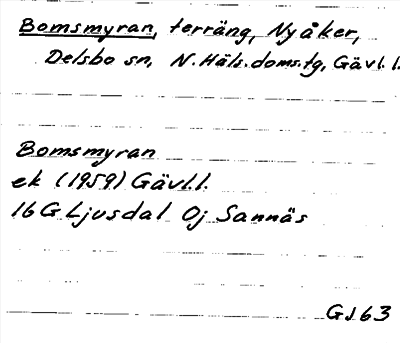 Bomsmyran, terräng, Nyåker,
Delsbo sn, N. Häls. doms.tg, Gävl. l.
Bomsmyran
ek (1959) Gävl. l.
16 G Ljusdal Oj Sannäs
GJ 63